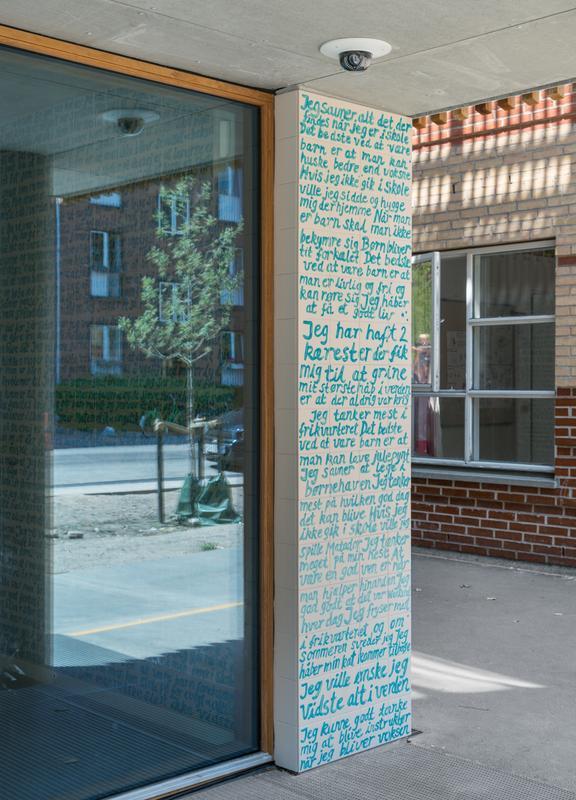 Jeg savner alt det, der
findes når jeg er i skole
Det bedste ved at være
barn er at man kan
huske bedre end voksne
Hvis jeg ikke gik i skole
ville jeg sidde og hygge
mig derhjemme Når man
er barn skal man ikke
bekymre sig Børn bliver
tit forkælet Det bedste
ved at være barn er at
man er livlig og fri og
kan røre sig Jeg håber
at få et godt liv
Jeg har haft 2
kærester der fik
mig til at grine
mit største håb i verden
er at der aldrig var krig
Jeg tænker mest i
frikvarteret Det bedste
ved at være barn er at
man kan lave julepynt
Jeg savner at lege i
børnehaven Jeg tænker
mest på hvilken god dag
det kan blive Hvis jeg
ikke gik i skole ville jeg
spille Matador Jeg tænker
meget på min hest At
være en god ven er når
man hjælper hinanden Jeg
gad godt at det var
hver dag Jeg fryser mest
i frikvarteret og om
sommeren sveder jeg Jeg
håber min kat kommer tilbage
Jeg ville ønske jeg
vidste alt i verden
Jeg kunne godt tænke
mig at blive instruktør
når jeg bliver voksen